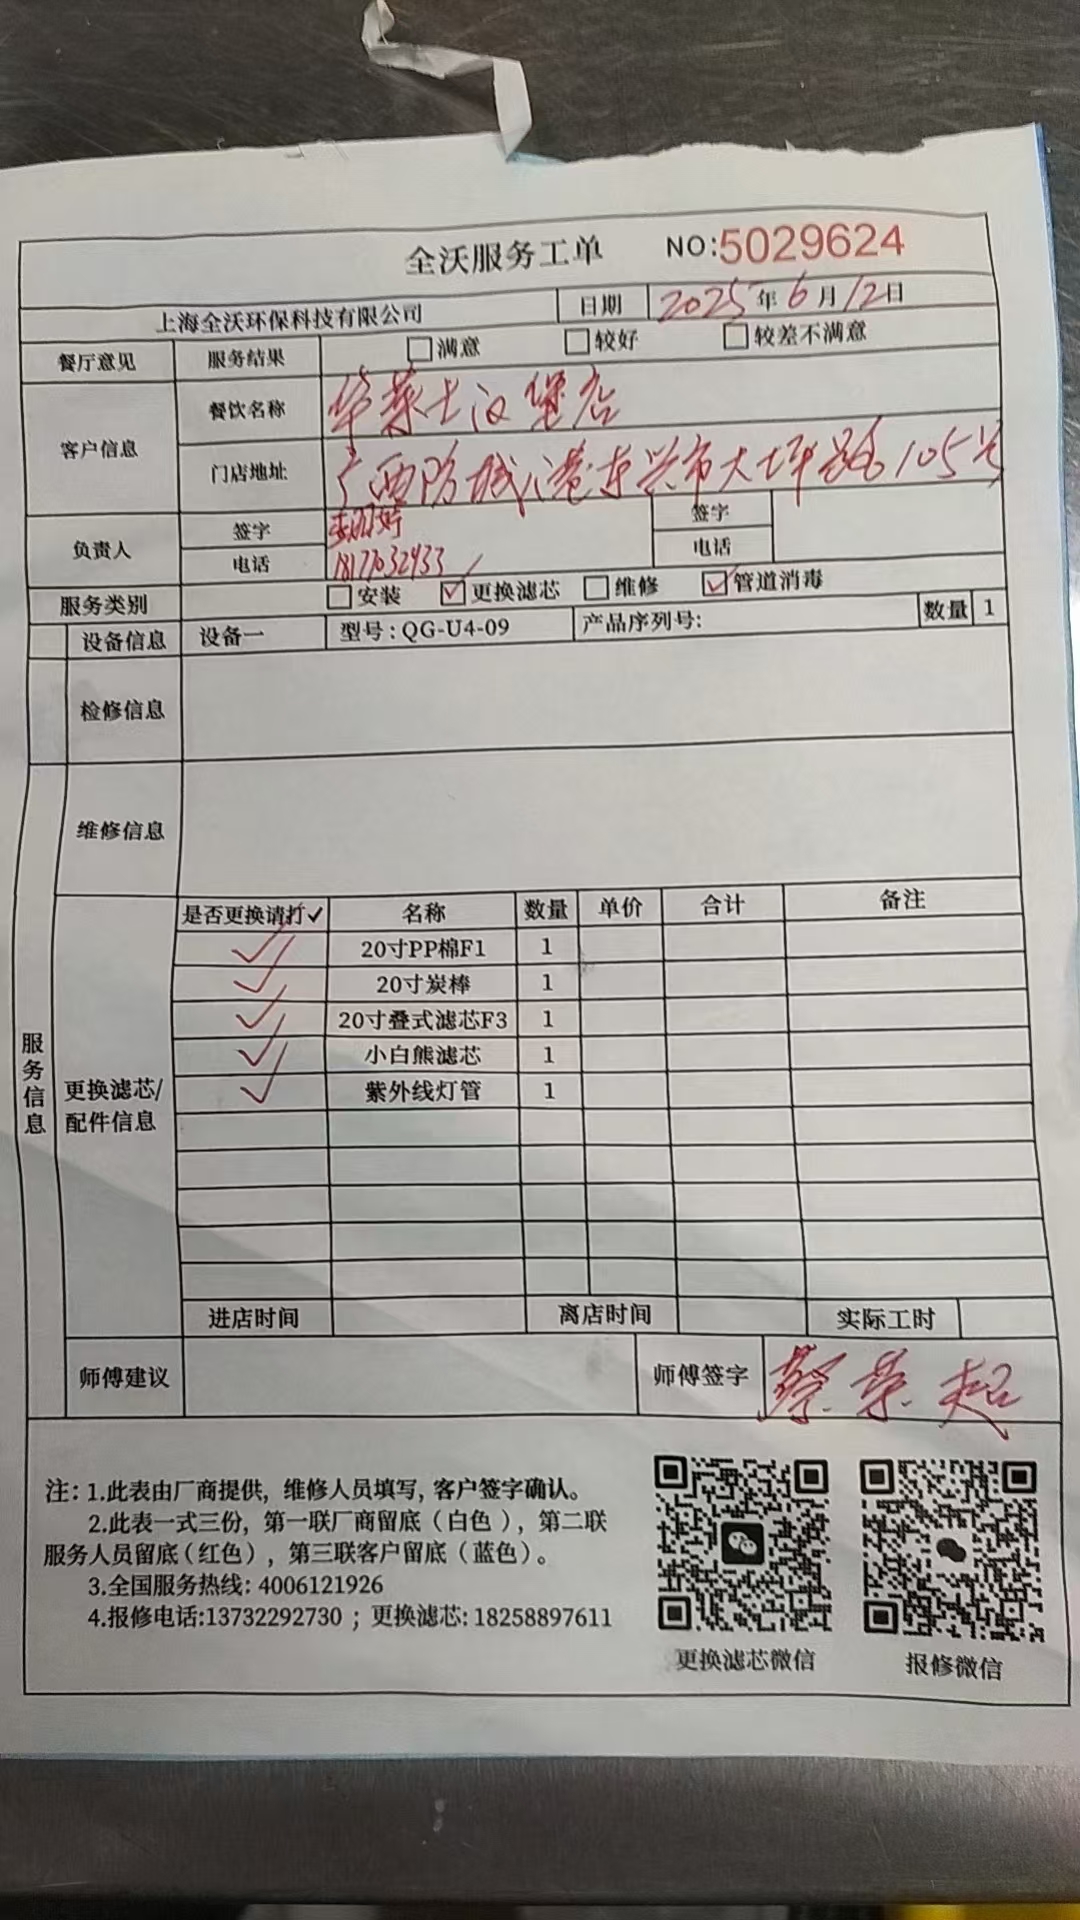 全沃服务工单 NO:5029624
上海全沃环保科技有限公司 日期 2025年6月12日
餐厅意见 服务结果 满意 较好 较差不满意
客户信息 餐饮名称 华莱士汉堡店
门店地址 广西防城港东兴市大坪路105号
负责人 签字 签字
电话 电话
服务类别 安装 ✓更换滤芯 维修 ✓管道消毒
设备信息 设备一 型号:QG-U4-09 产品序列号: 数量 1
检修信息
维修信息
服务信息
更换滤芯/配件信息
是否更换请打✓ 名称 数量 单价 合计 备注
✓ 20寸PP棉F1 1
✓ 20寸炭棒 1
✓ 20寸叠式滤芯F3 1
✓ 小白熊滤芯 1
✓ 紫外线灯管 1
进店时间 离店时间 实际工时
师傅建议 师傅签字 蔡荣超
注: 1.此表由厂商提供, 维修人员填写, 客户签字确认。
2.此表一式三份, 第一联厂商留底(白色), 第二联
服务人员留底(红色), 第三联客户留底(蓝色)。
3.全国服务热线: 4006121926
4.报修电话:13732292730 ; 更换滤芯: 18258897611
更换滤芯微信 报修微信